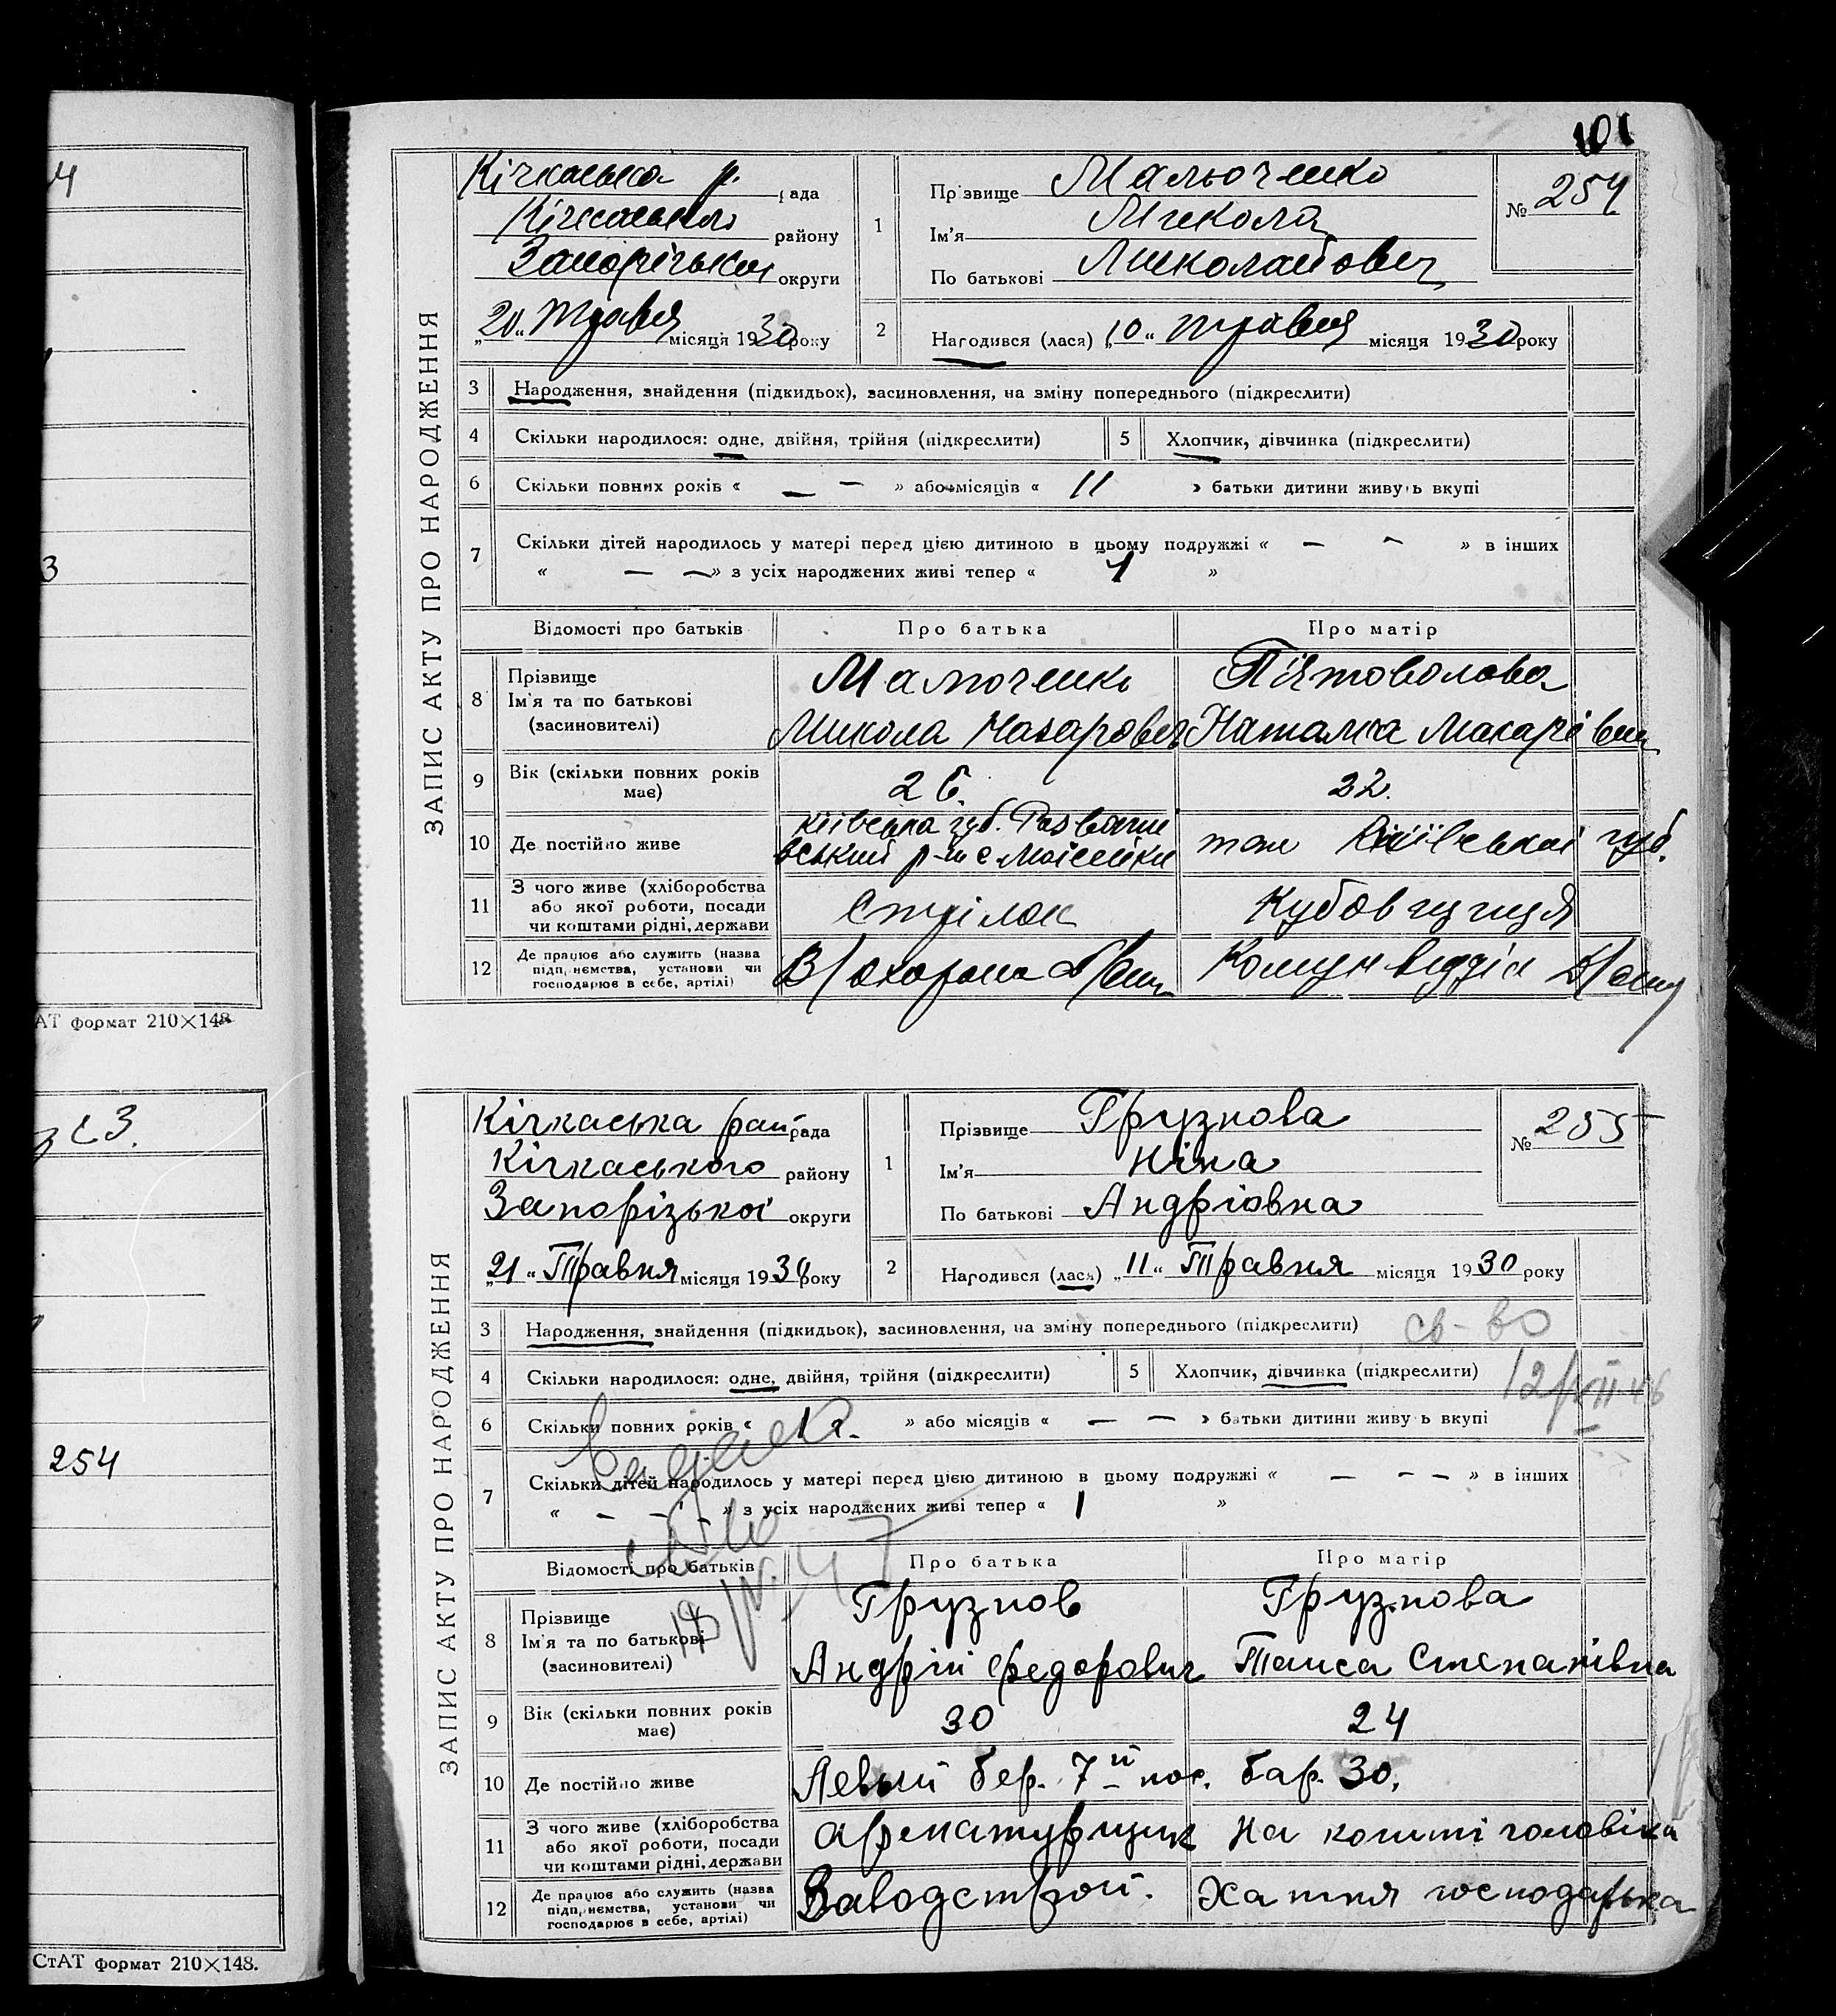 101
ЗАПИС АКТУ ПРО НАРОДЖЕННЯ
Кічкаська р. рада
району
Запорізької округи
„20“ травня місяця 1930 року
1
Прізвище Мальоченко
Ім'я Микола
По батькові Миколайович
№ 254
2
Народився (лася) „10“ травня місяця 1930 року
3 Народження, знайдення (підкидьок), засиновлення, на зміну попереднього (підкреслити)
4 Скільки народилося: одне, двійня, трійня (підкреслити)
5 Хлопчик, дівчинка (підкреслити)
6 Скільки повних років « — — » або місяців « 11 » батьки дитини живуть вкупі
7 Скільки дітей народилось у матері перед цією дитиною в цьому подружжі « — — » в інших
« — — » з усіх народжених живі тепер « 1 »
Відомості про батьків Про батька Про матір
8 Прізвище
Ім'я та по батькові
(засиновителі)
Мальоченко
Микола Назарович
Наталка Макарівна
9 Вік (скільки повних років має) 26. 22.
10 Де постійно живе
Київська губ.
вський р-н с.
там Київської губ.
11 З чого живе (хліборобства
або якої роботи, посади
чи коштами рідні, держави
Стрілок
12 Де працює або служить (назва
підприємства, установи чи
господарює в себе, артілі)
В/охорона
Комунвідділ
АТ формат 210×148
с3.
254
СтАТ формат 210×148.
ЗАПИС АКТУ ПРО НАРОДЖЕННЯ
Кічкаська рай рада
Кічкаського району
Запорізької округи
„21“ Травня місяця 1930 року
1
Прізвище Грузнова
Ім'я Ніна
По батькові Андріовна
№ 255
2
Народився (лася) „11“ Травня місяця 1930 року
3 Народження, знайдення (підкидьок), засиновлення, на зміну попереднього (підкреслити)
св-во
4 Скільки народилося: одне, двійня, трійня (підкреслити)
5 Хлопчик, дівчинка (підкреслити)
6 Скільки повних років « 1 р. » або місяців « — — » батьки дитини живуть вкупі
7 Скільки дітей народилось у матері перед цією дитиною в цьому подружжі « — — — » в інших
« — — — » з усіх народжених живі тепер « 1 »
Відомості про батьків Про батька Про матір
8 Прізвище
Ім'я та по батькові
(засиновителі)
Грузнов
Андрій Федорович
Грузнова
Таиса Степанівна
9 Вік (скільки повних років має) 30 24
10 Де постійно живе Левый бер. 7й пос. бар. 30.
11 З чого живе (хліборобства
або якої роботи, посади
чи коштами рідні, держави
арматурщик
На кошті головіка
12 Де працює або служить (назва
підприємства, установи чи
господарює в себе, артілі)
Заводстрой.
Хатня господарька